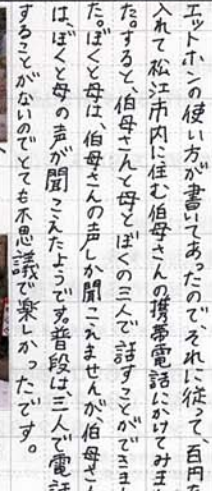 エットホンの使い方が書いてあったので、それに従って、百円
入れて松江市内に住む伯母さんの携帯電話にかけてみま
た。すると、伯母さんと母とぼくの三人で話すことができま
た。ぼくと母は、伯母さんの声しか聞こえませんが、伯母さ
は、ぼくと母の声が聞こえたようです。普段は、三人で電話
することがないのでとても不思議で楽しかったです。